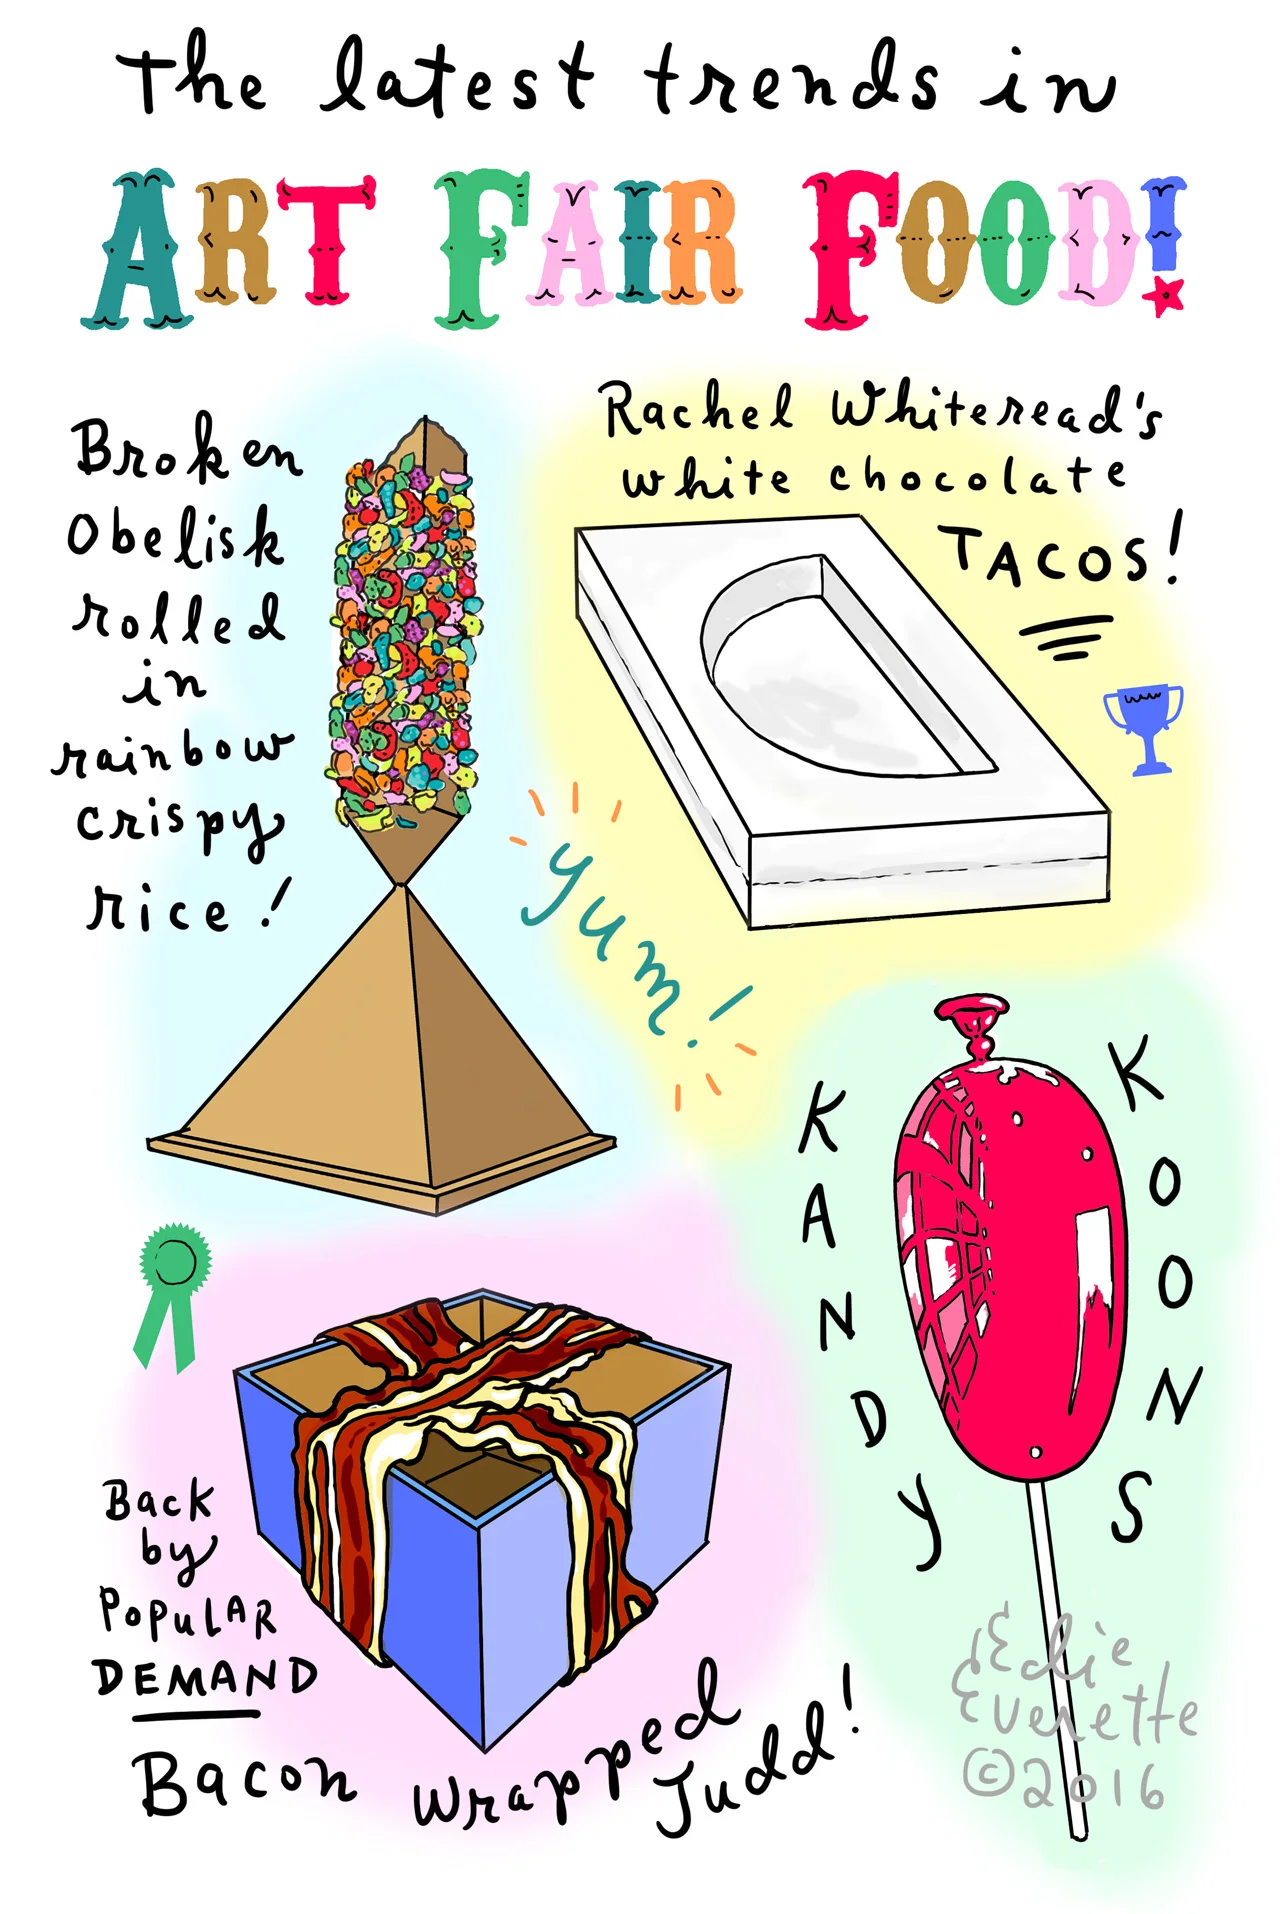 The latest trends in
ART FAIR FOOD!
Broken
Obelisk
rolled
in
rainbow
crispy
rice!
Rachel Whiteread's
white chocolate
TACOS!
yum!
KANDY
KOONS
Back
by
POPULAR
DEMAND
Bacon Wrapped Judd!
Edie
Everette
©2016